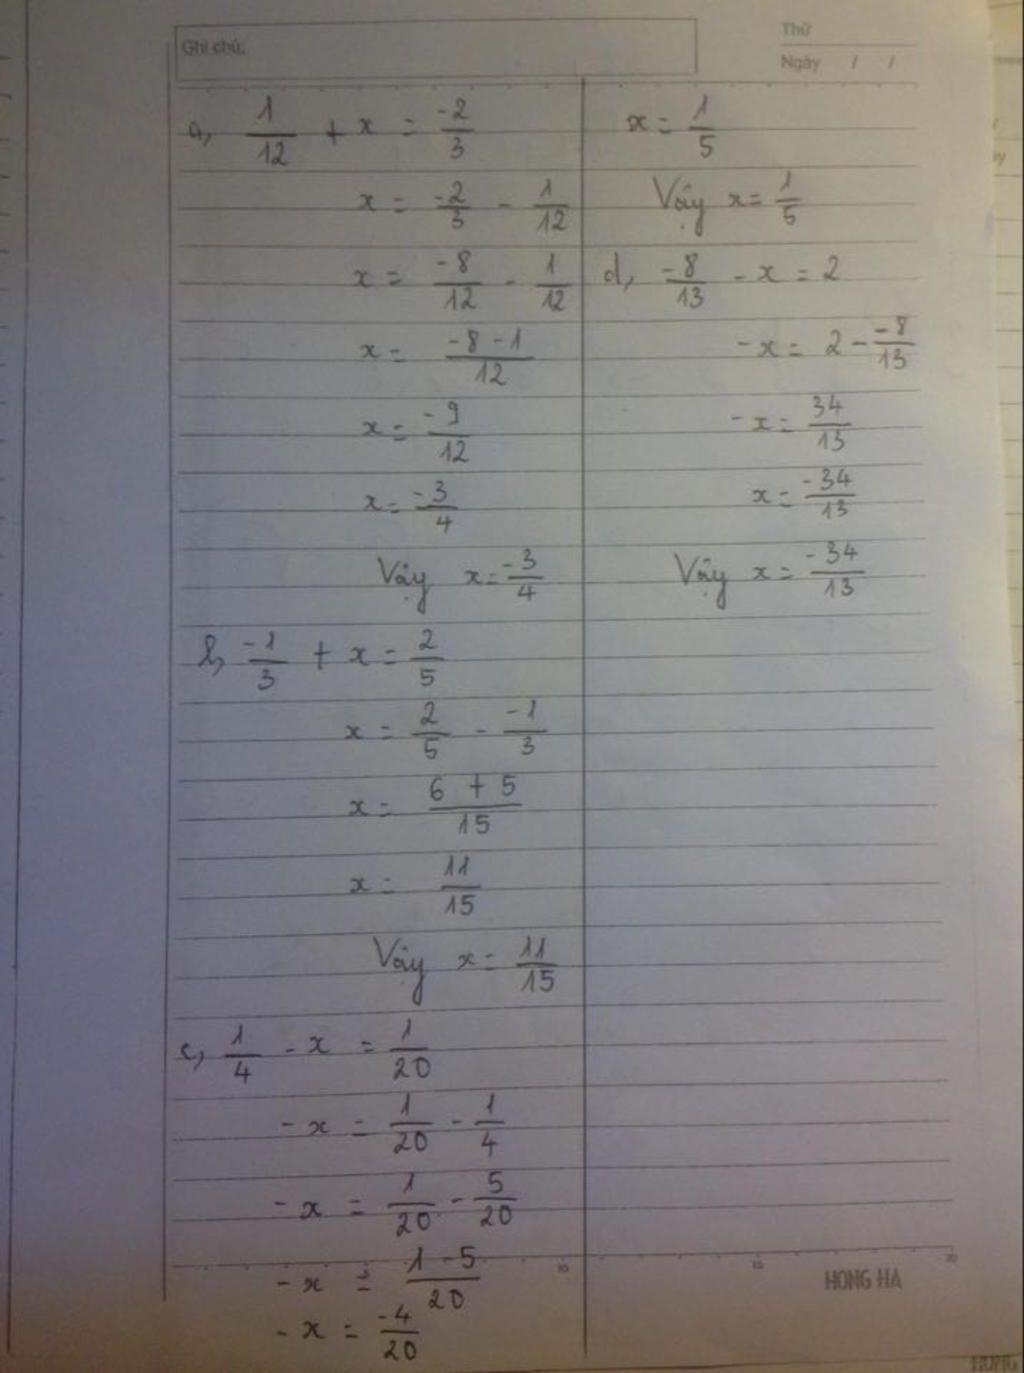 Ghi chú:
Thứ
Ngày / /
a, 1/12 + x = -2/3
x = -2/3 - 1/12
x = -8/12 - 1/12
x = -8 - 1/12
x = -9/12
x = -3/4
Vậy x = -3/4
b, -1/3 + x = 2/5
x = 2/5 - -1/3
x = 6 + 5/15
x = 11/15
Vậy x = 11/15
c, 1/4 - x = 1/20
- x = 1/20 - 1/4
- x = 1/20 - 5/20
- x = 1 - 5/20
- x = -4/20
x = 1/5
Vậy x = 1/5
d, -8/13 - x = 2
- x = 2 - -8/13
- x = 34/13
x = -34/13
Vậy x = -34/13
10 15 20
HONG HA